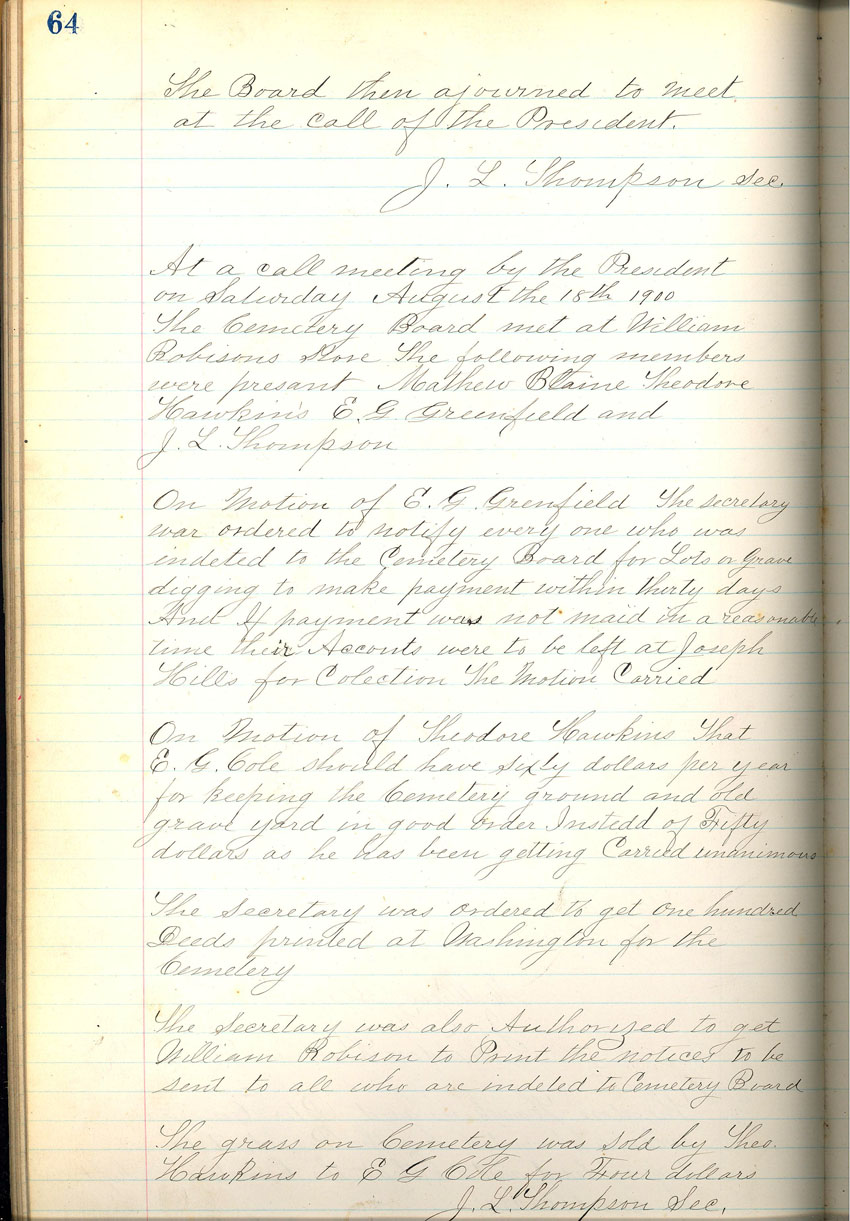 64
The Board then ajourned to meet
at the call of the President.
J. L. Thompson Sec.
At a call meeting by the President
on Saturday August the 18th 1900
The Cemetery Board met at William
Robisons Store The following members
were presant Mathew Blaine Theodore
Hawkins E. G. Greenfield and
J. L. Thompson
On Motion of E. G. Grenfield The secretary
was ordered to notify every one who was
indeted to the Cemetery Board for Lots or Grave
digging to make payment within thirty days
And If payment was not maid in a reasonable
time their Acconts were to be left at Joseph
Hills for Colection The Motion Carried
On Motion of Theodore Hawkins That
E. G. Cole should have sixty dollars per year
for keeping the Cemetery ground and old
grave yard in good order Instedd of Fifty
dollars as he has been getting Carried unanimous
The Secretary was ordered to get one hundred
Deeds printed at Washington for the
Cemetery
The Secretary was also Authorized to get
William Robison to Print the notices to be
sent to all who are indeted to Cemetery Board
The grass on Cemetery was sold by Theo.
Hawkins to E G Cole for Four dollars
J. L. Thompson Sec.